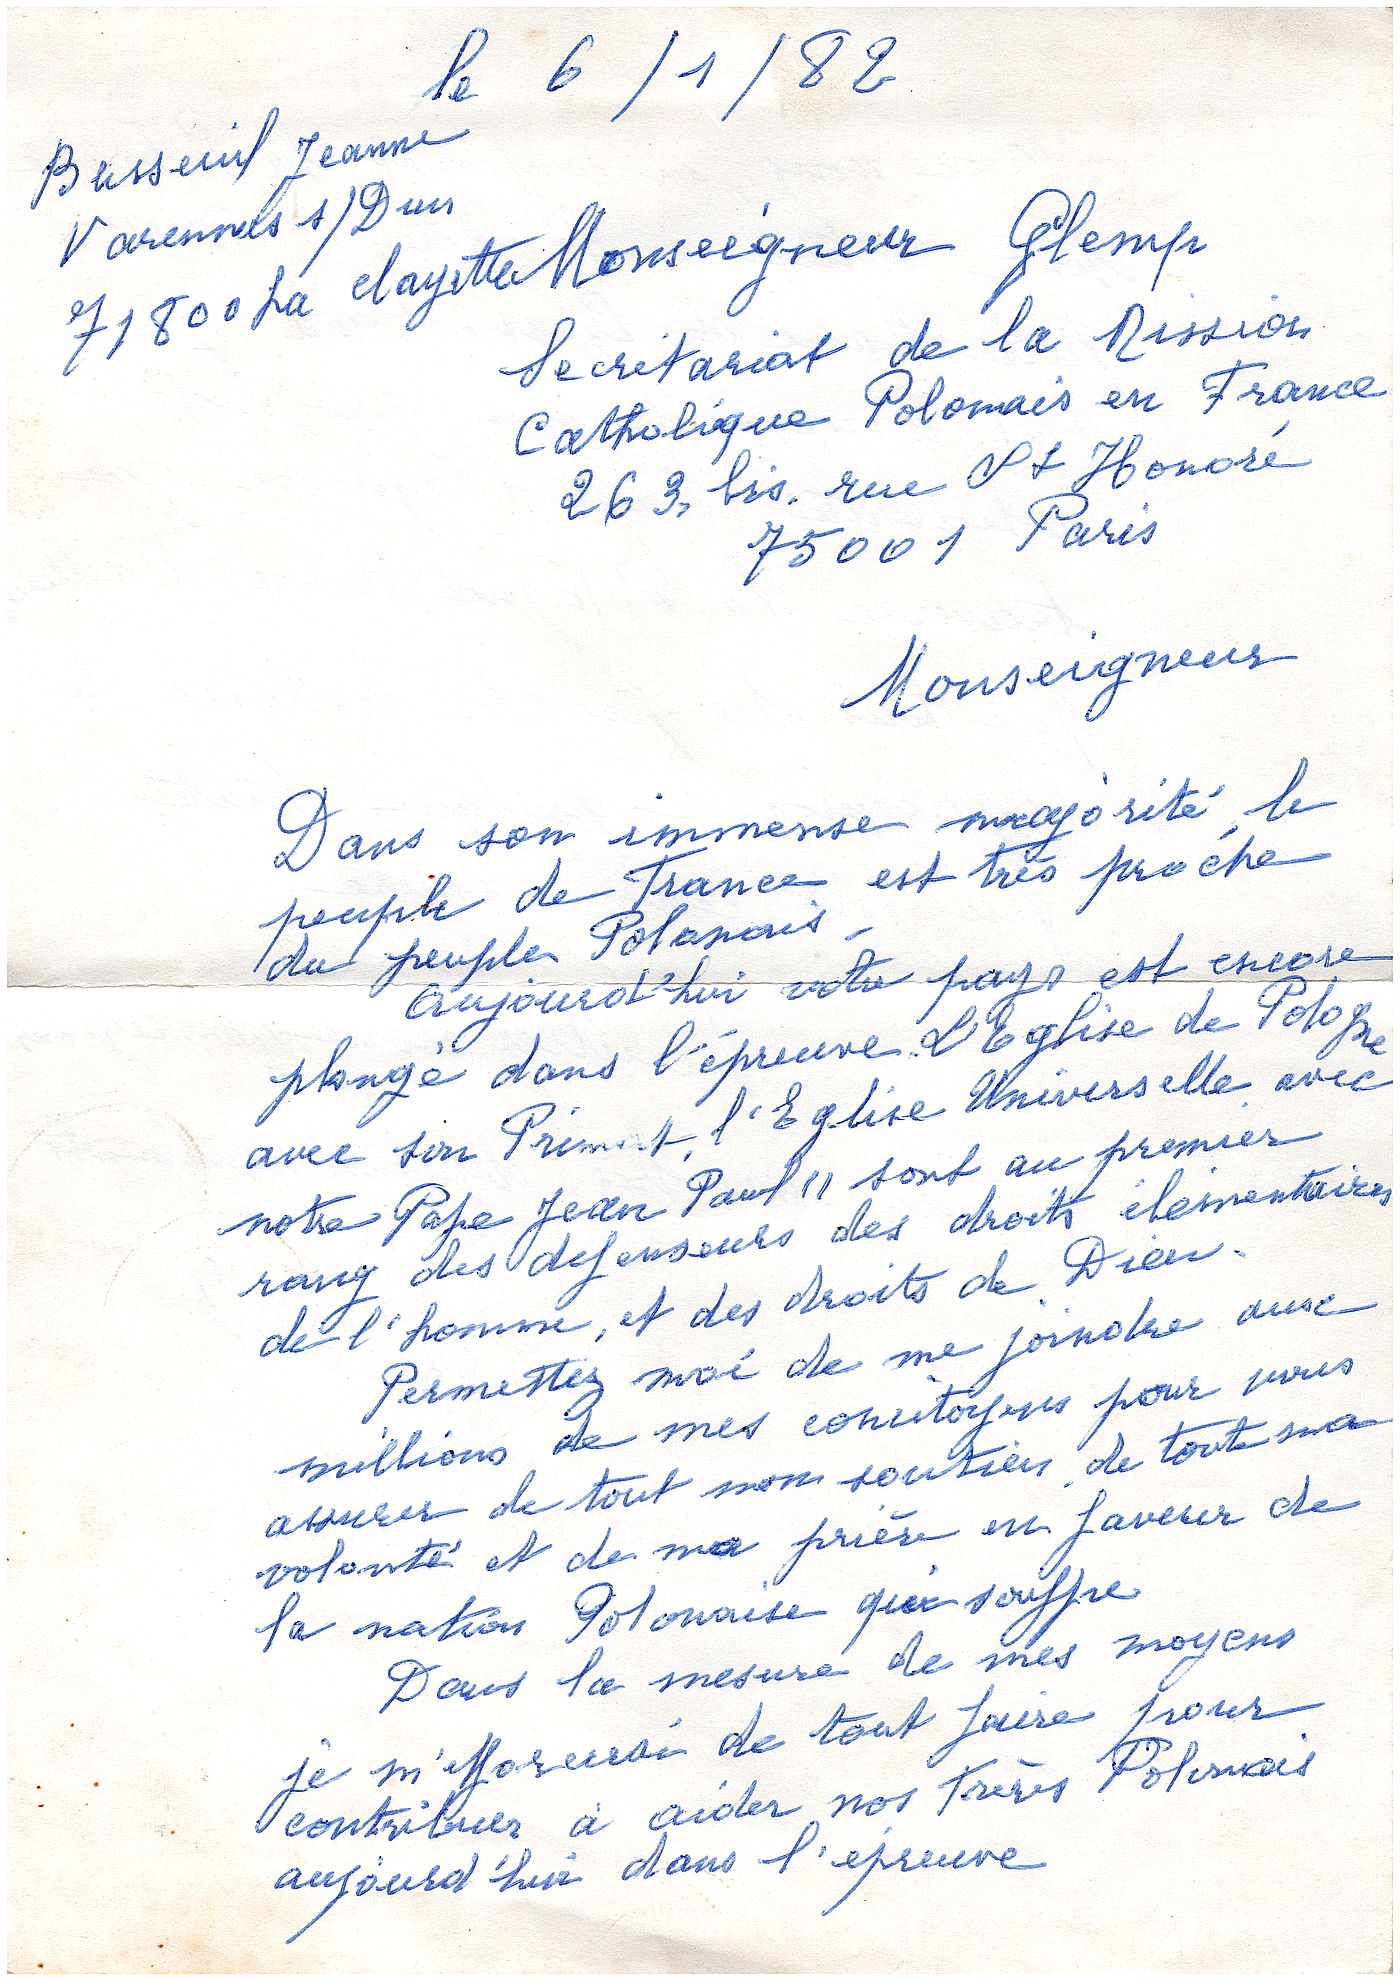 le 6/1/82
Busseuil Jeanne
Varennes s/Dun
71800 La Clayette
Monseigneur Glemp
Secrétariat de la Mission
Catholique Polonais en France
263, bis. rue St Honoré
75001 Paris
Monseigneur
Dans son immense majorité, le
peuple de France est très proche
du peuple Polonais.
Aujourd'hui votre pays est encore
plongé dans l'épreuve. L'Eglise de Pologne
avec son Primat, l'Eglise Universelle avec
notre Pape Jean Paul II sont au premier
rang des defenseurs des droits élémentaires
de l'homme, et des droits de Dieu.
Permettez moi de me joindre aux
millions de mes concitoyens pour vous
assurer de tout mon soutien, de toute ma
volonté et de ma prière en faveur de
la nation Polonaise qui souffre
Dans la mesure de mes moyens
je m'efforcerai de tout faire pour
contribuer à aider nos frères Polonais
aujourd'hui dans l'épreuve